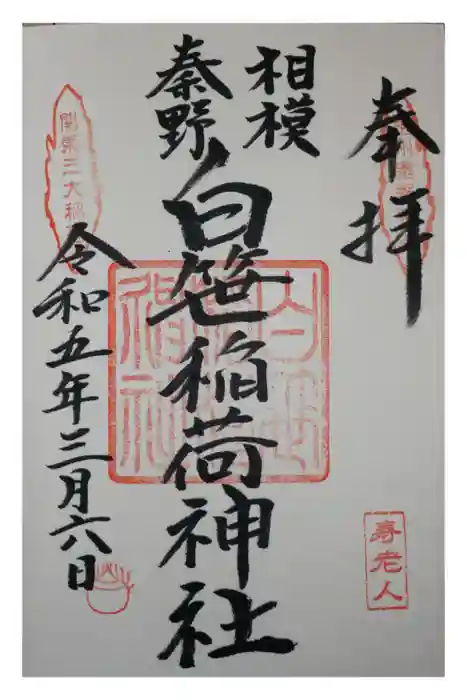 奉拝
相模
秦野
白笹稲荷神社
令和五年三月六日
関東三大稲
寿老人